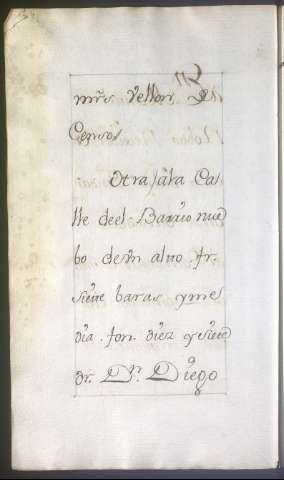 mrs. Vellon de
Censos
Otra, â la Ca
lle deel Barrio nue
bo desu alito fr.
siete baras y me
dia. fon. diez y siete
dr. Dn. Diego